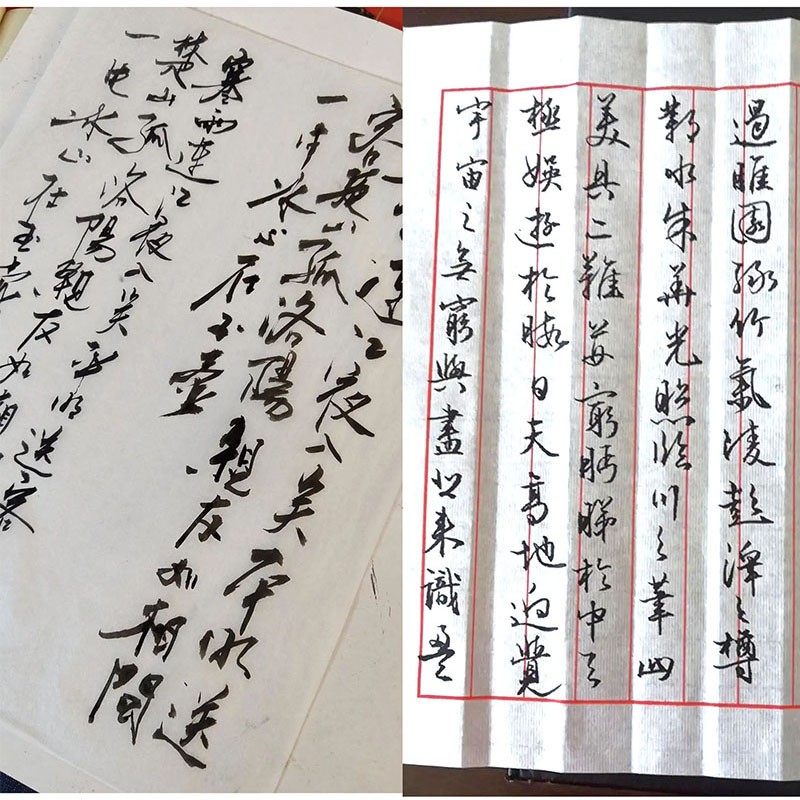 連江夜入吳平明送
客楚山孤洛陽親友如相問
一片冰心在玉壺
寒雨連江夜入吳平明送客
楚山孤洛陽親友如相
一片冰心在玉壺
遏睢園綠竹氣凌彭澤之樽
鄴水朱華光照臨川之筆四
美具二難並窮眄睇於中天
極娛遊於暇日天高地迥覺
宇宙之無窮興盡悲來識盈